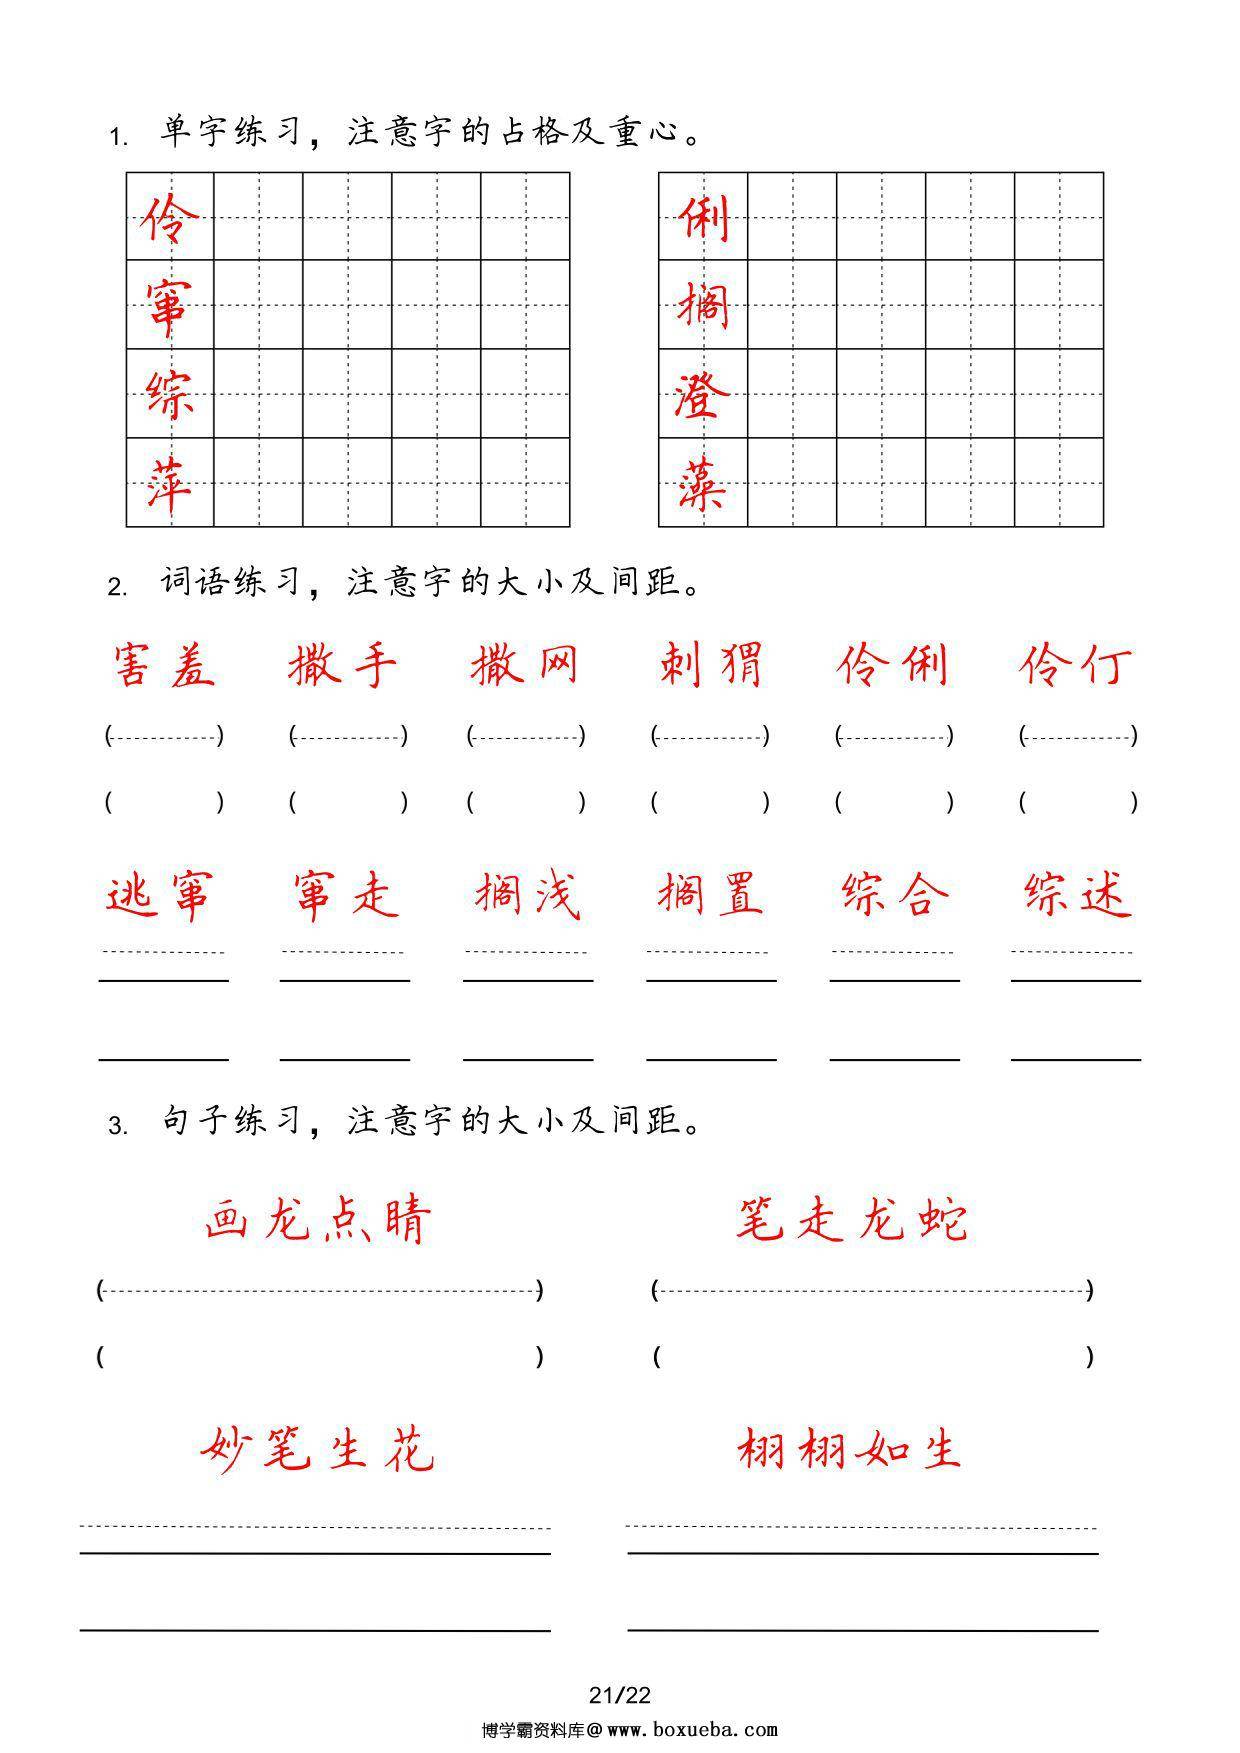 1. 单字练习，注意字的占格及重心。
伶 俐
窜 搁
综 澄
萍 藻
2. 词语练习，注意字的大小及间距。
害羞 撒手 撒网 刺猬 伶俐 伶仃
( ) ( ) ( ) ( ) ( ) ( )
( ) ( ) ( ) ( ) ( ) ( )
逃窜 窜走 搁浅 搁置 综合 综述
3. 句子练习，注意字的大小及间距。
画龙点睛 笔走龙蛇
( ) ( )
( ) ( )
妙笔生花 栩栩如生
21/22
博学霸资料库@www.boxueba.com